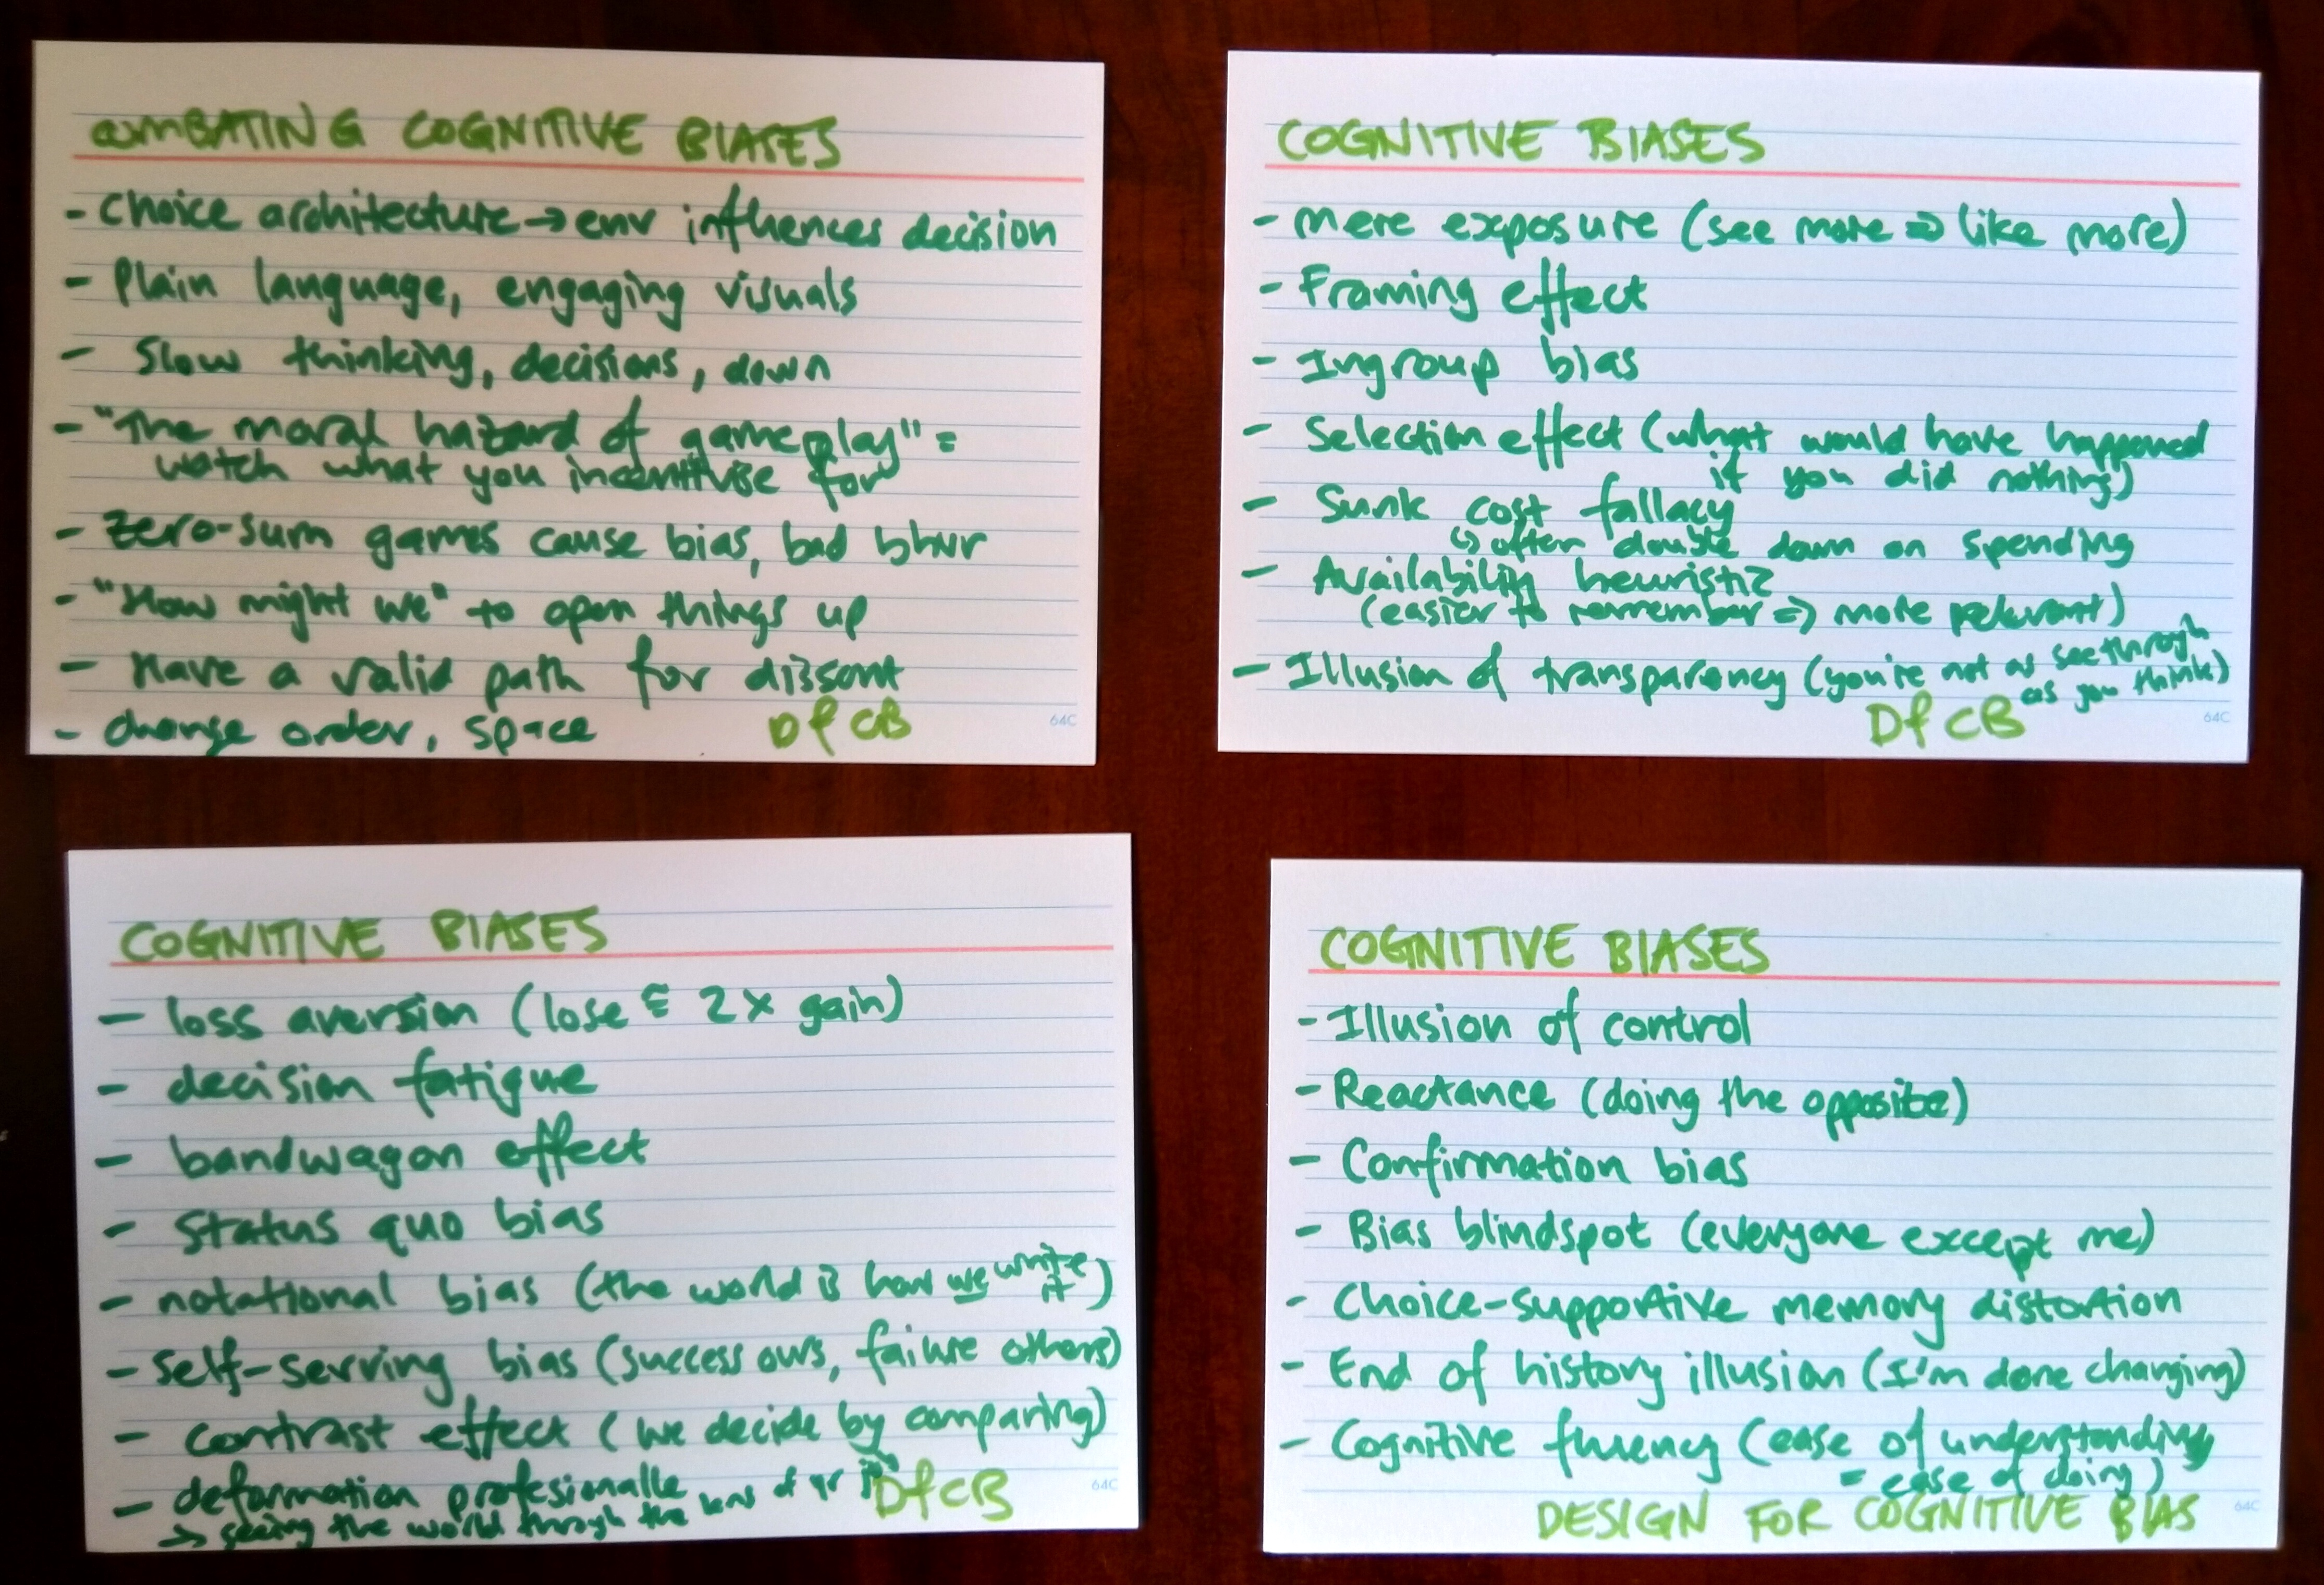 COMBATING COGNITIVE BIASES
- Choice architecture → env influences decision
- Plain language, engaging visuals
- Slow thinking, decisions, down
- "The moral hazard of gameplay" =
watch what you incentivise for
- Zero-sum games cause bias, bad bhvr
- "How might we" to open things up
- Have a valid path for dissent
- change order, space
DfCB
64C
COGNITIVE BIASES
- Mere exposure (see more => like more)
- Framing effect
- Ingroup bias
- Selection effect (what would have happened
if you did nothing)
- Sunk cost fallacy
↳ often double down on spending
- Availability heuristic
(easier to remember => more relevant)
- Illusion of transparency (you're not as seethrough
as you think)
DfCB
64C
COGNITIVE BIASES
- loss aversion (lose = 2x gain)
- decision fatigue
- bandwagon effect
- status quo bias
- notational bias (the world is how we write
it)
- self-serving bias (success ours, failure others)
- contrast effect (we decide by comparing)
- deformation profesionalle
→ seeing the world through the lens of yr job
DfCB
64C
COGNITIVE BIASES
- Illusion of control
- Reactance (doing the opposite)
- Confirmation bias
- Bias blindspot (everyone except me)
- Choice-supportive memory distortion
- End of history illusion (I'm done changing)
- Cognitive fluency (ease of understanding
= ease of doing)
DESIGN FOR COGNITIVE BIAS
64C